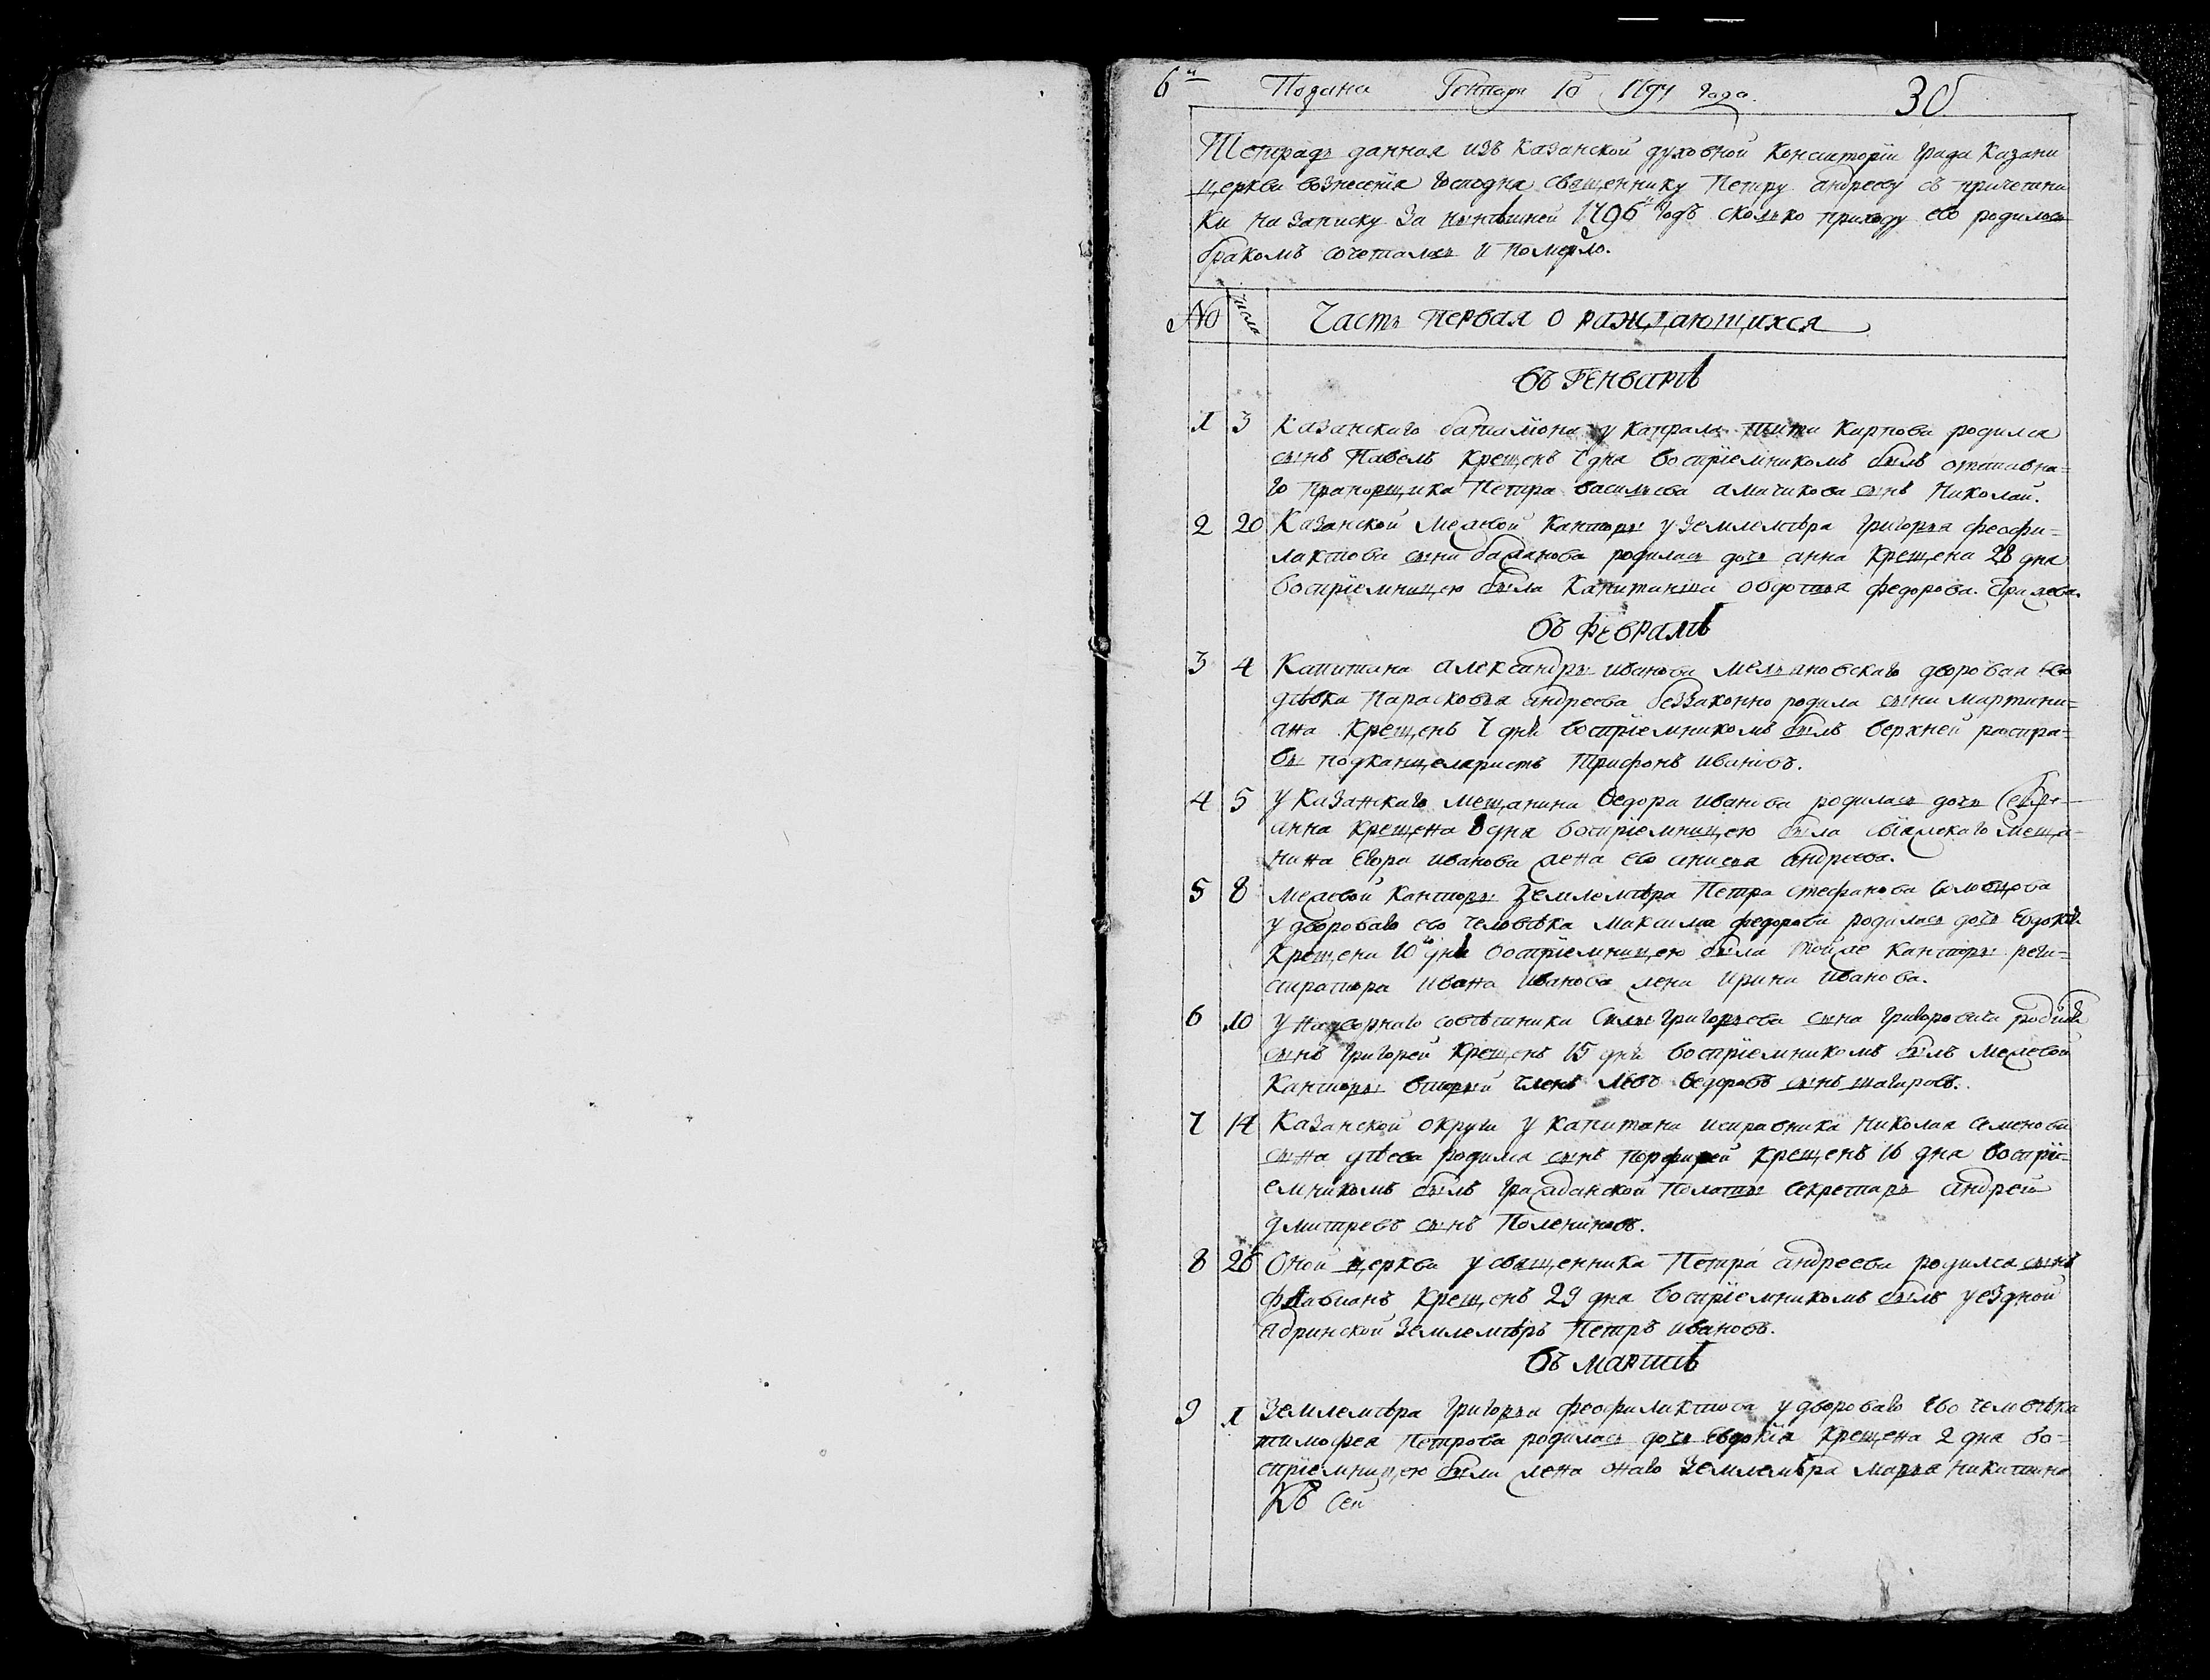 6й Подана Генваря 10 179 года. 30
Тетрадь данная изъ Казанской духовной Консисторïи града Казани
церкви вознесенïя Господня священнику Петру андрееву съ причетни
ки на записку за нынѣшней 1796й годъ сколько приходу ево родилось
бракомъ сочеталось и померло.
№ число Часть первая о раждающихся
въ генварѣ
1 3 Казанскаго баталïона у капрала тита Карпова родился
сынъ Павелъ крещенъ 7 дня воспрïемникомъ былъ отставна=
го прапорщика Петра васильева сынъ Николай.
2 20 Казанской межевой канторы у землемѣра григорья феофи=
лактова сына баланова родилась дочь анна крещена 28 дня
воспрïемницею была капитанша овдотья федорова.
въ февралѣ
3 4 Капитана александра иванова дворовая ево
дѣвка Парасковья андреева беззаконно родила сына мартини=
ана крещенъ 7 дня воспрïемникомъ былъ верхней распра=
вы подканцеляристъ трифонъ ивановъ.
4 5 у Казанскаго мещанина ѳедора иванова родилась дочь
анна крещена 8 дня воспрïемницею была свïяжскаго меща=
нина егора иванова жена ево анисья андреева.
5 8 межевой канторы землемѣра Петра стефанова
у дворового ево человѣка максима федорова родилась дочь евдокïя
крещена 10го дня воспрïемницею была тойже канторы реги=
стратора ивана иванова жена ирина иванова.
6 10 у надворнаго совѣтника силы григорьева сына григоровича родился
сынъ григорей крещенъ 15 дня воспрïемникомъ былъ межевой
канторы вторый членъ левъ ѳедоровъ сынъ
7 14 Казанской округи у капитана исправника николая семенова
сына дѣева родился сынъ порфирей крещенъ 16 дня воспрï=
емникомъ былъ гражданской полаты секретарь андрей
дмитревъ сынъ
8 26 Оной церкви у священника Петра андреева родился сынъ
флавианъ крещенъ 29 дня воспрïемникомъ былъ уездной
ядринской землемѣръ Петръ ивановъ.
въ мартѣ
9 1 Землемѣра григорья феофилактова у дворового ево человѣка
тимофея Петрова родилась дочь евдокïя крещена 2 дня во=
спрïемницею была жена онаго землемѣра марья никитина
Къ сей